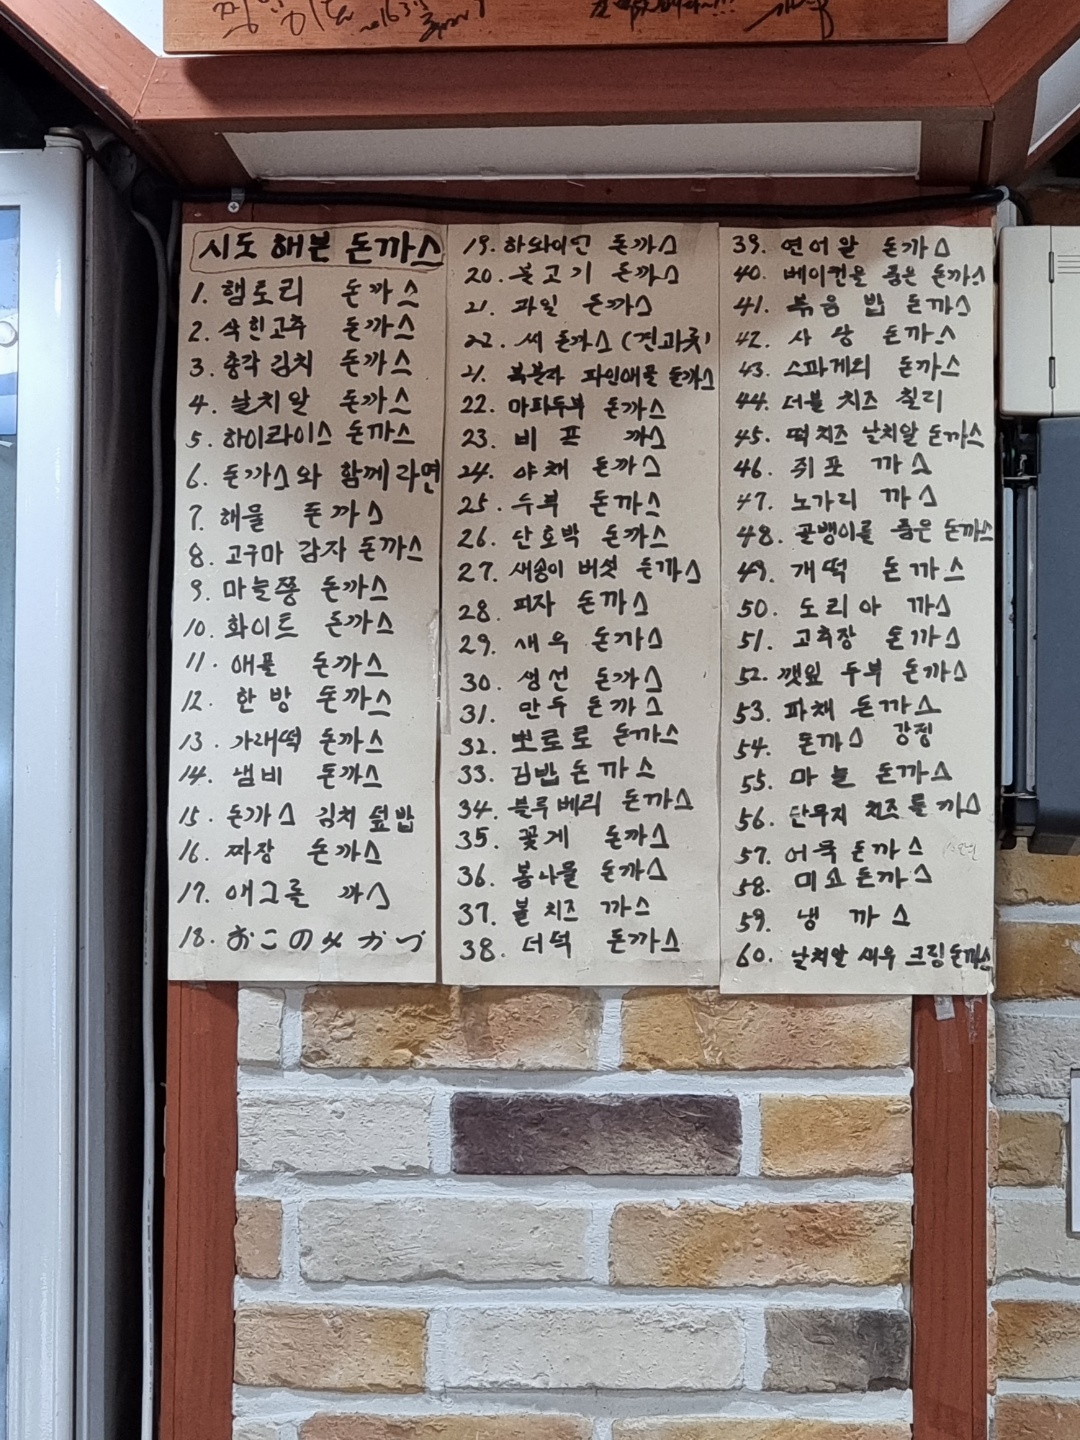 시도 해본 돈까스
1. 햄토리 돈까스
2. 삭힌고추 돈까스
3. 총각김치 돈까스
4. 날치알 돈까스
5. 하이라이스 돈까스
6. 돈까스와 함께라면
7. 해물 돈까스
8. 고구마 감자 돈까스
9. 마늘쫑 돈까스
10. 화이트 돈까스
11. 애플 돈까스
12. 한방 돈까스
13. 가래떡 돈까스
14. 냄비 돈까스
15. 돈까스 김치 덮밥
16. 짜장 돈까스
17. 애그롤 까스
18. おこのみ かつ
19. 하와이언 돈까스
20. 불고기 돈까스
21. 과일 돈까스
22. 씨 돈까스 (견과류)
21. 복분자 파인애플 돈까스
22. 마파두부 돈까스
23. 비프 까스
24. 야채 돈까스
25. 두부 돈까스
26. 단호박 돈까스
27. 새송이 버섯 돈까스
28. 피자 돈까스
29. 새우 돈까스
30. 생선 돈까스
31. 만두 돈까스
32. 뽀로로 돈까스
33. 김밥 돈까스
34. 블루베리 돈까스
35. 꽃게 돈까스
36. 봄나물 돈까스
37. 불치즈 까스
38. 더덕 돈까스
39. 연어알 돈까스
40. 베이컨을 품은 돈까스
41. 볶음밥 돈까스
42. 사랑 돈까스
43. 스파게티 돈까스
44. 더블 치즈 칠리
45. 떡치즈 날치알 돈까스
46. 쥐포 까스
47. 노가리 까스
48. 골뱅이를 품은 돈까스
49. 개떡 돈까스
50. 도리아 까스
51. 고추장 돈까스
52. 깻잎 두부 돈까스
53. 파채 돈까스
54. 돈까스 강정
55. 마늘 돈까스
56. 단무지 치즈롤 까스
57. 어묵 돈까스
58. 미소 돈까스
59. 냉 까스
60. 날치알 새우 크림 돈까스